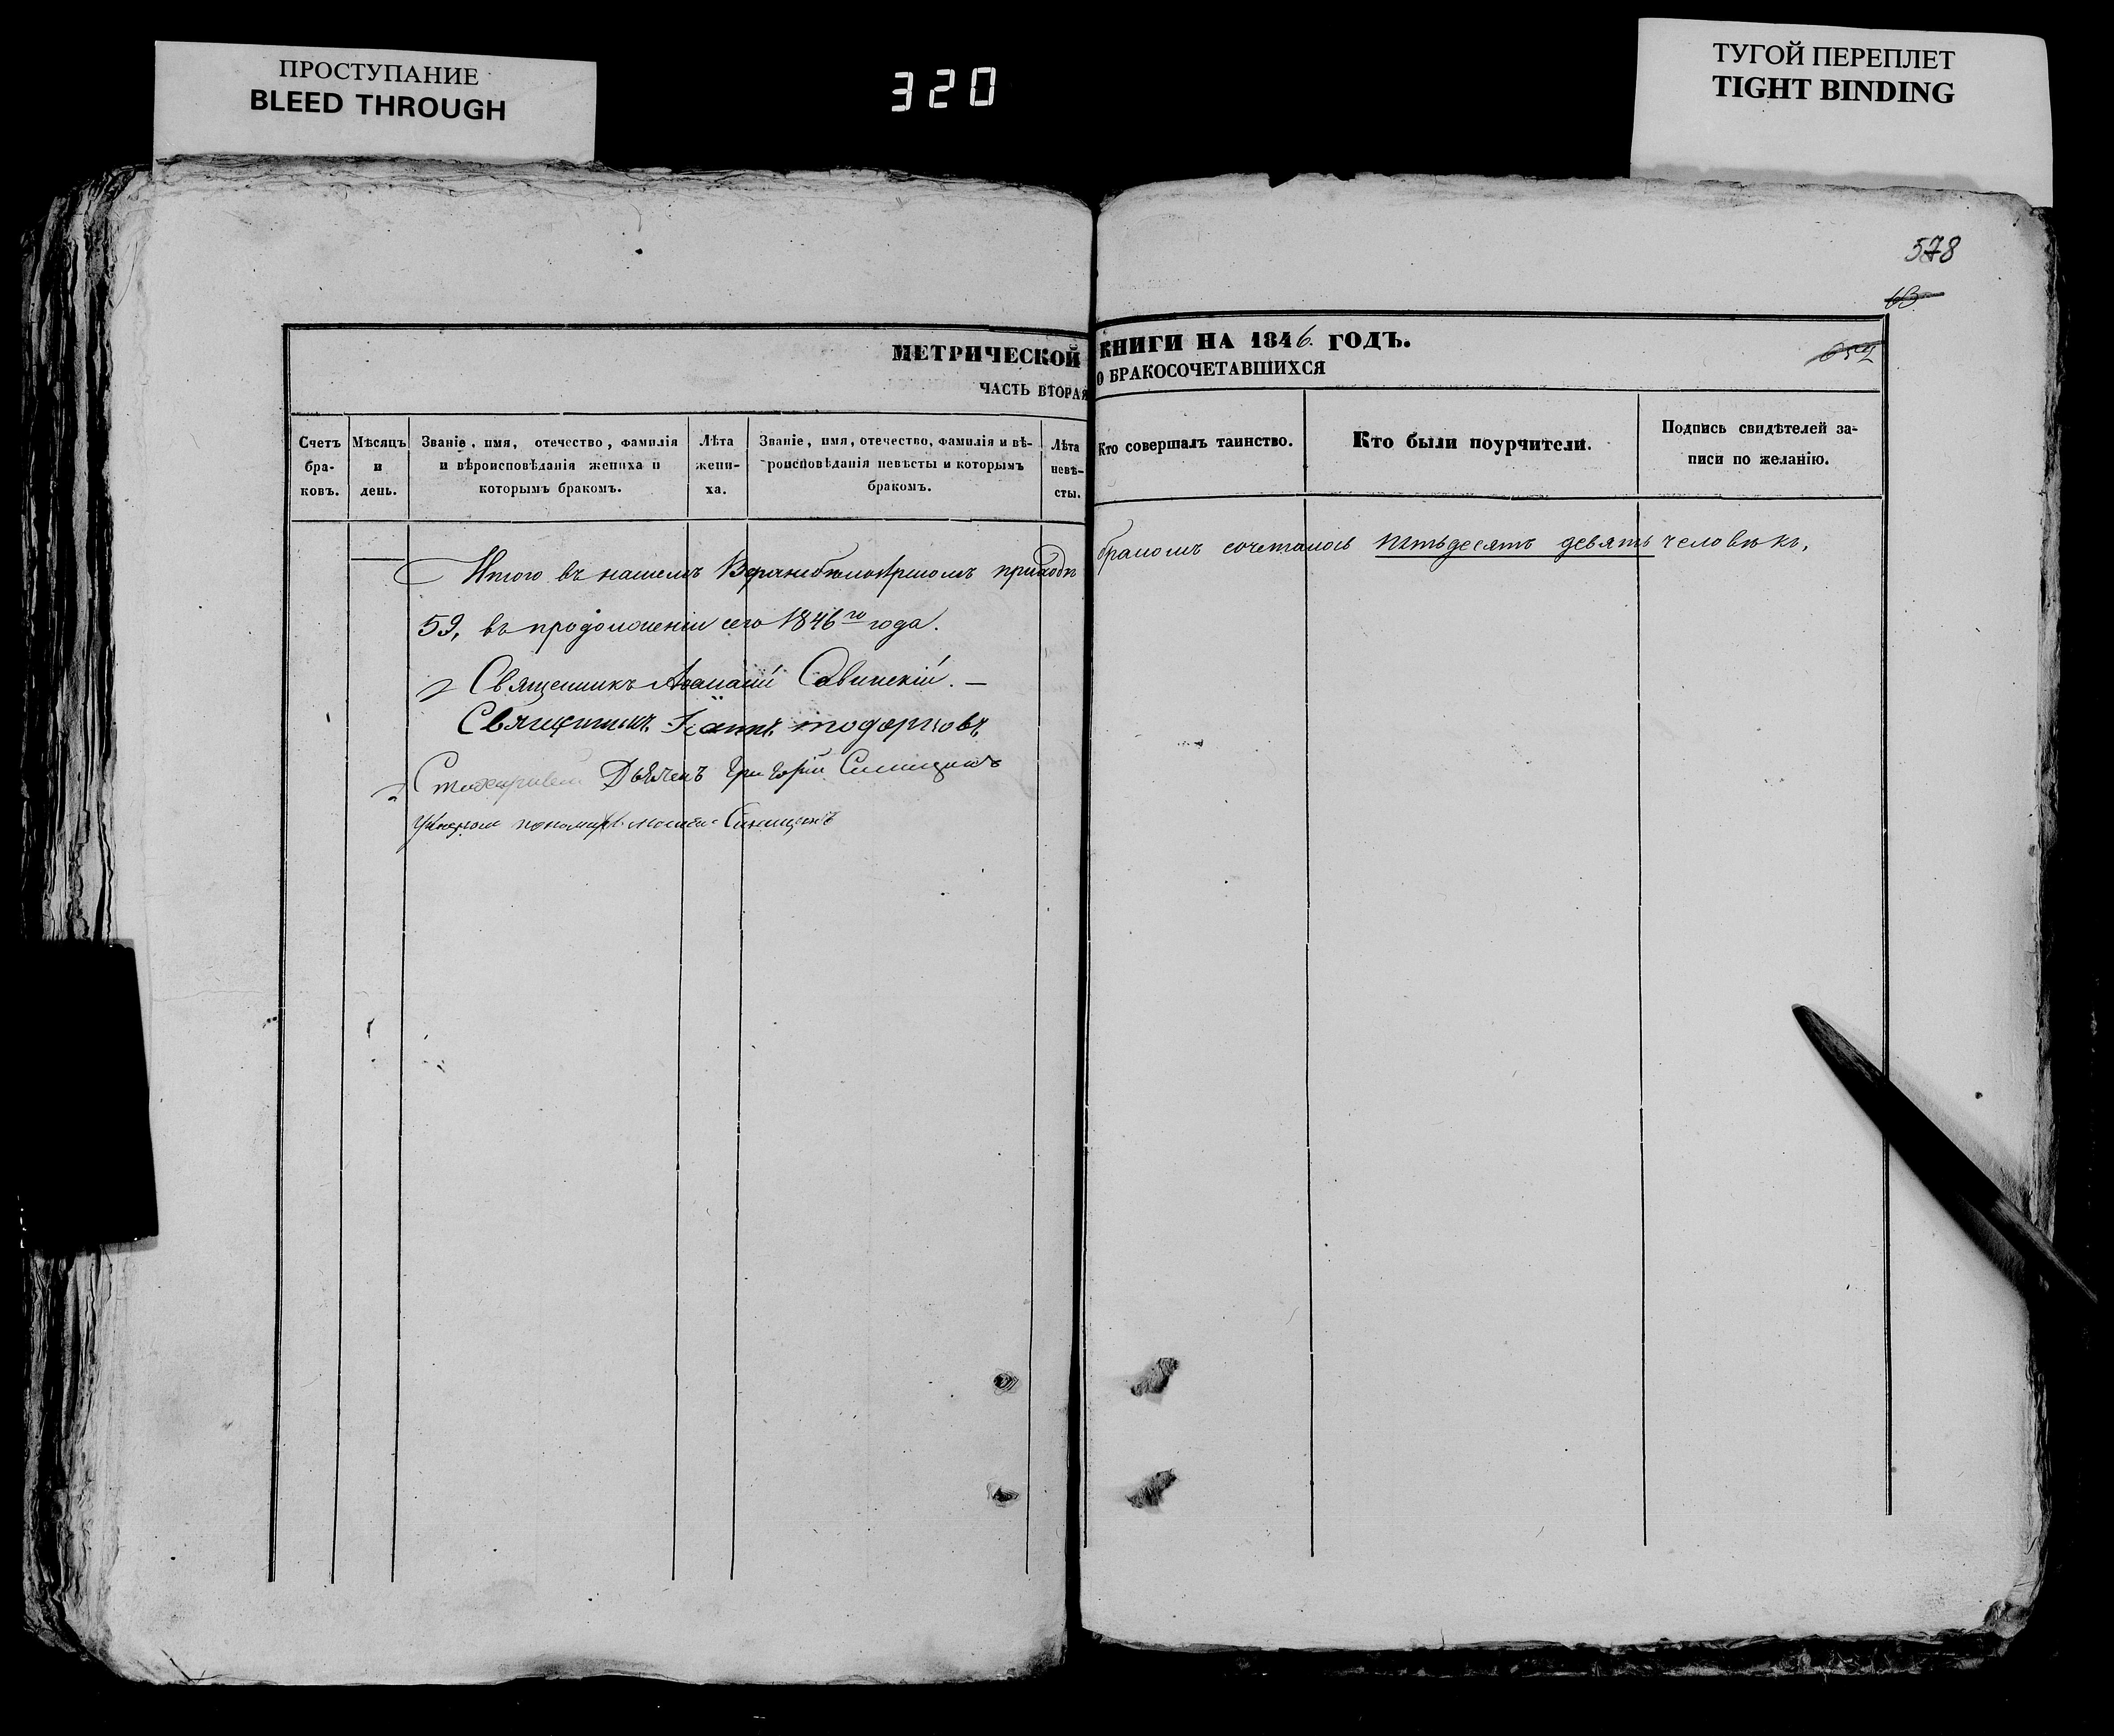 ПРОСТУПАНИЕ
BLEED THROUGH
320
ТУГОЙ ПЕРЕПЛЕТ
TIGHT BINDING
578
63
МЕТРИЧЕСКОЙ КНИГИ НА 1846. ГОДЪ.
ЧАСТЬ ВТОРАЯ О БРАКОСОЧЕТАВШИХСЯ
Счетъ бра-ковъ.
Мѣсяцъ и день.
Званіе, имя, отечество, фамилія и вѣроисповѣданія жениха и которымъ бракомъ.
Лѣта жени-ха.
Званіе, имя, отечество, фамилія и вѣ-роисповѣданія невѣсты и которымъ бракомъ.
Лѣта невѣ-сты.
Кто совершалъ таинство.
Кто были поурчители.
Подпись свидѣтелей за-писи по желанію.
Итого въ нашемъ приходѣ бракомъ сочеталось пятьдесятъ девять человѣкъ,
59, въ продолженіи сего 1846го года.
Священникъ Савинскій.
Священникъ
Дьячекъ Григорій Синицинъ
Синицинъ